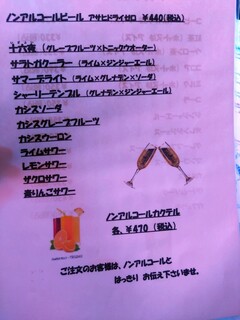 ノンアルコールビール アサヒドライゼロ ¥440(税込)
十六夜 (グレープフルーツ×トニックウオーター)
サラトガクーラー (ライム×ジンジャーエール)
サマーデライト (ライム×グレナデン×ソーダ)
シャーリーテンプル (グレナデン×ジンジャーエール)
カシスソーダ
カシスグレープフルーツ
カシスウーロン
ライムサワー
レモンサワー
ザクロサワー
青りんごサワー
ノンアルコールカクテル
各、¥470 (税込)
ご注文のお客様は、ノンアルコールと
はっきり お伝え下さいませ。